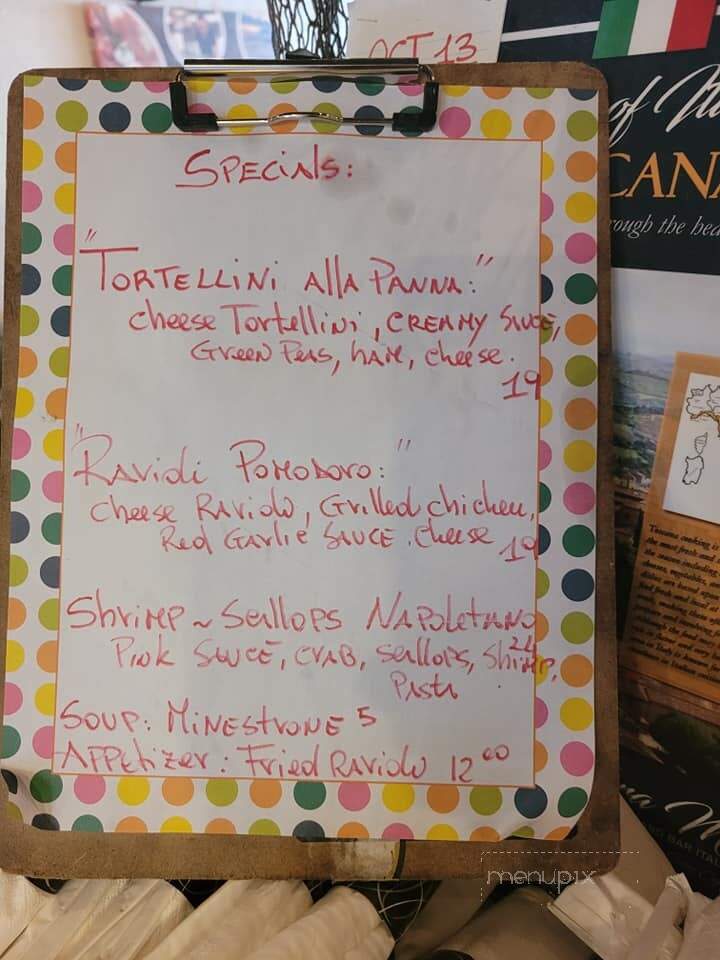 OCT 13
SPECIALS:
"TORTELLINI ALLA PANNA:"
cheese Tortellini, CREAMY SAUCE,
Green Peas, HAM, cheese.
19
"RAVIOLI POMODORO:"
cheese RAVIOLI, Grilled chicken,
Red GARLIC SAUCE. cheese 19
Shrimp ~ Scallops NAPOLETANO
Pink SAUCE, CRAB, Scallops, Shrimp,
Pasta
SOUP: MINESTRONE 5
APPetizer: Fried RAVIOLI 12 00
of
CANA
rough the hea
menupix